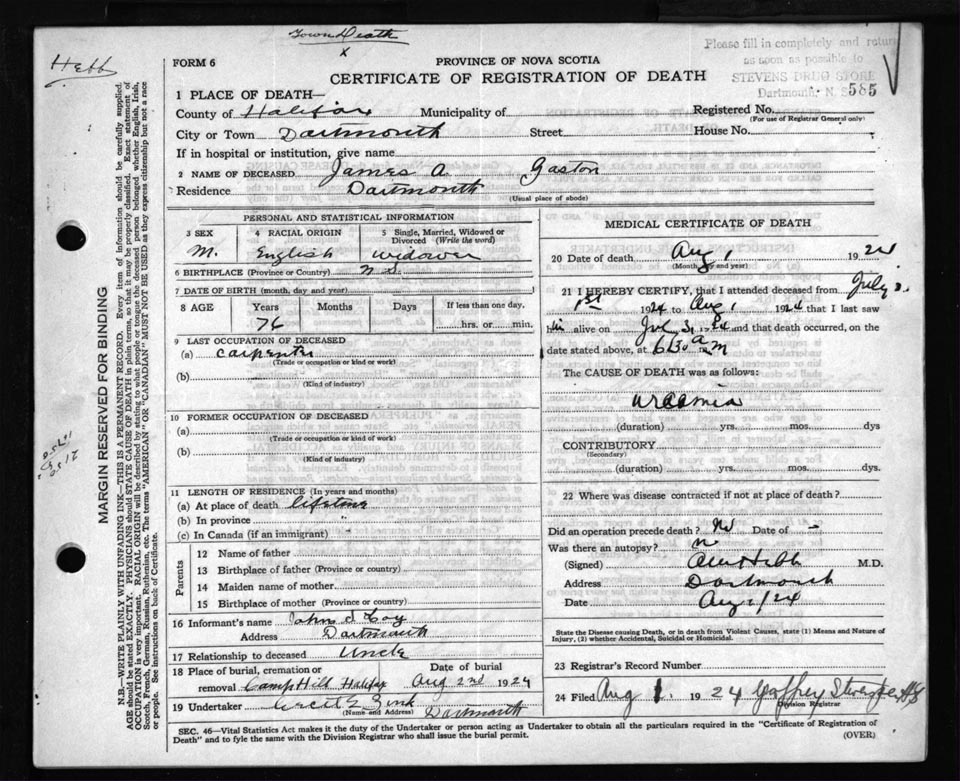 Town Death
x
Hebb
Please fill in completely and return
as soon as possible to
STEVENS DRUG STORE
Dartmouth, N. S.
585
FORM 6
PROVINCE OF NOVA SCOTIA
CERTIFICATE OF REGISTRATION OF DEATH
1 PLACE OF DEATH—
County of Halifax Municipality of Registered No.
(For use of Registrar General only)
City or Town Dartmouth Street House No.
If in hospital or institution, give name
2 NAME OF DECEASED James A. Gaston
Residence Dartmouth
(Usual place of abode)
PERSONAL AND STATISTICAL INFORMATION
3 SEX 4 RACIAL ORIGIN 5 Single, Married, Widowed or Divorced (Write the word)
M. English widower
6 BIRTHPLACE (Province or Country) N.S.
7 DATE OF BIRTH (month, day and year)
8 AGE Years Months Days If less than one day,
76 hrs. or min.
9 LAST OCCUPATION OF DECEASED
(a) carpenter
(Trade or occupation or kind or work)
(b)
(Kind of industry)
10 FORMER OCCUPATION OF DECEASED
(a)
(Trade or occupation or kind of work)
(b)
(Kind of industry)
11 LENGTH OF RESIDENCE (In years and months)
(a) At place of death lifetime
(b) In province "
(c) In Canada (if an immigrant)
Parents
12 Name of father
13 Birthplace of father (Province or country)
14 Maiden name of mother
15 Birthplace of mother (Province or country)
16 Informant's name John
Address Dartmouth
17 Relationship to deceased Uncle
18 Place of burial, cremation or removal Camp Hill Halifax Date of burial Aug 2nd 1924
19 Undertaker Zink Dartmouth
(Name and Address)
MEDICAL CERTIFICATE OF DEATH
20 Date of death Aug 1 1924
(Month, day and year)
21 I HEREBY CERTIFY, that I attended deceased from July
1st 1924 to Aug 1 1924 that I last saw
him alive on 31 24 and that death occurred, on the
date stated above, at 6.30 a m
The CAUSE OF DEATH was as follows:
uraemia
(duration) yrs. mos. dys
CONTRIBUTORY
(Secondary)
(duration) yrs. mos. dys.
22 Where was disease contracted if not at place of death?
Did an operation precede death? No Date of —
Was there an autopsy? no
(Signed) Hebb M.D.
Address Dartmouth
Date Aug 1/24
State the Disease causing Death, or in death from Violent Causes, state (1) Means and Nature of
Injury, (2) whether Accidental, Suicidal or Homicidal.
23 Registrar's Record Number
24 Filed Aug 1. 1924 Stevens
Division Registrar
SEC. 46—Vital Statistics Act makes it the duty of the Undertaker or person acting as Undertaker to obtain all the particulars required in the "Certificate of Registration of
Death" and to fyle the same with the Division Registrar who shall issue the burial permit. (OVER)
MARGIN RESERVED FOR BINDING
N.B.—WRITE PLAINLY WITH UNFADING INK—THIS IS A PERMANENT RECORD. Every item of information should be carefully supplied.
AGE should be stated EXACTLY. PHYSICIANS should STATE CAUSE OF DEATH in plain terms, so that it may be properly classified. Exact statement of
OCCUPATION is very important. RACIAL ORIGIN will be described by stating to what people or tongue the deceased person belonged whether English, Irish,
Scotch, French, German, Russian, Ruthenian, etc. The terms "AMERICAN" or "CANADIAN" MUST NOT BE USED as they express citizenship but not a race
or people. See instructions on back of Certificate.